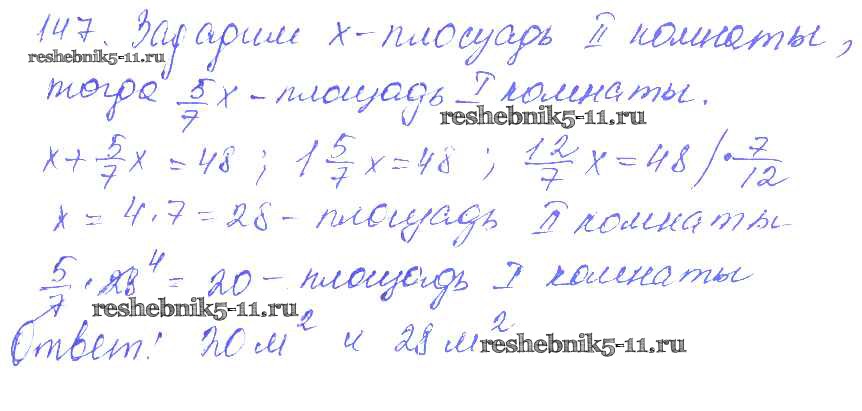 147. Зададим x - площадь II комнаты,
reshebnik5-11.ru
тогда 5/7 x - площадь I комнаты.
reshebnik5-11.ru
x + 5/7 x = 48 ; 1 5/7 x = 48 ; 12/7 x = 48 | · 7/12
x = 4 · 7 = 28 - площадь II комнаты
5/7 · 28 4 = 20 - площадь I комнаты
reshebnik5-11.ru
Ответ: 20 м² и 28 м²
reshebnik5-11.ru